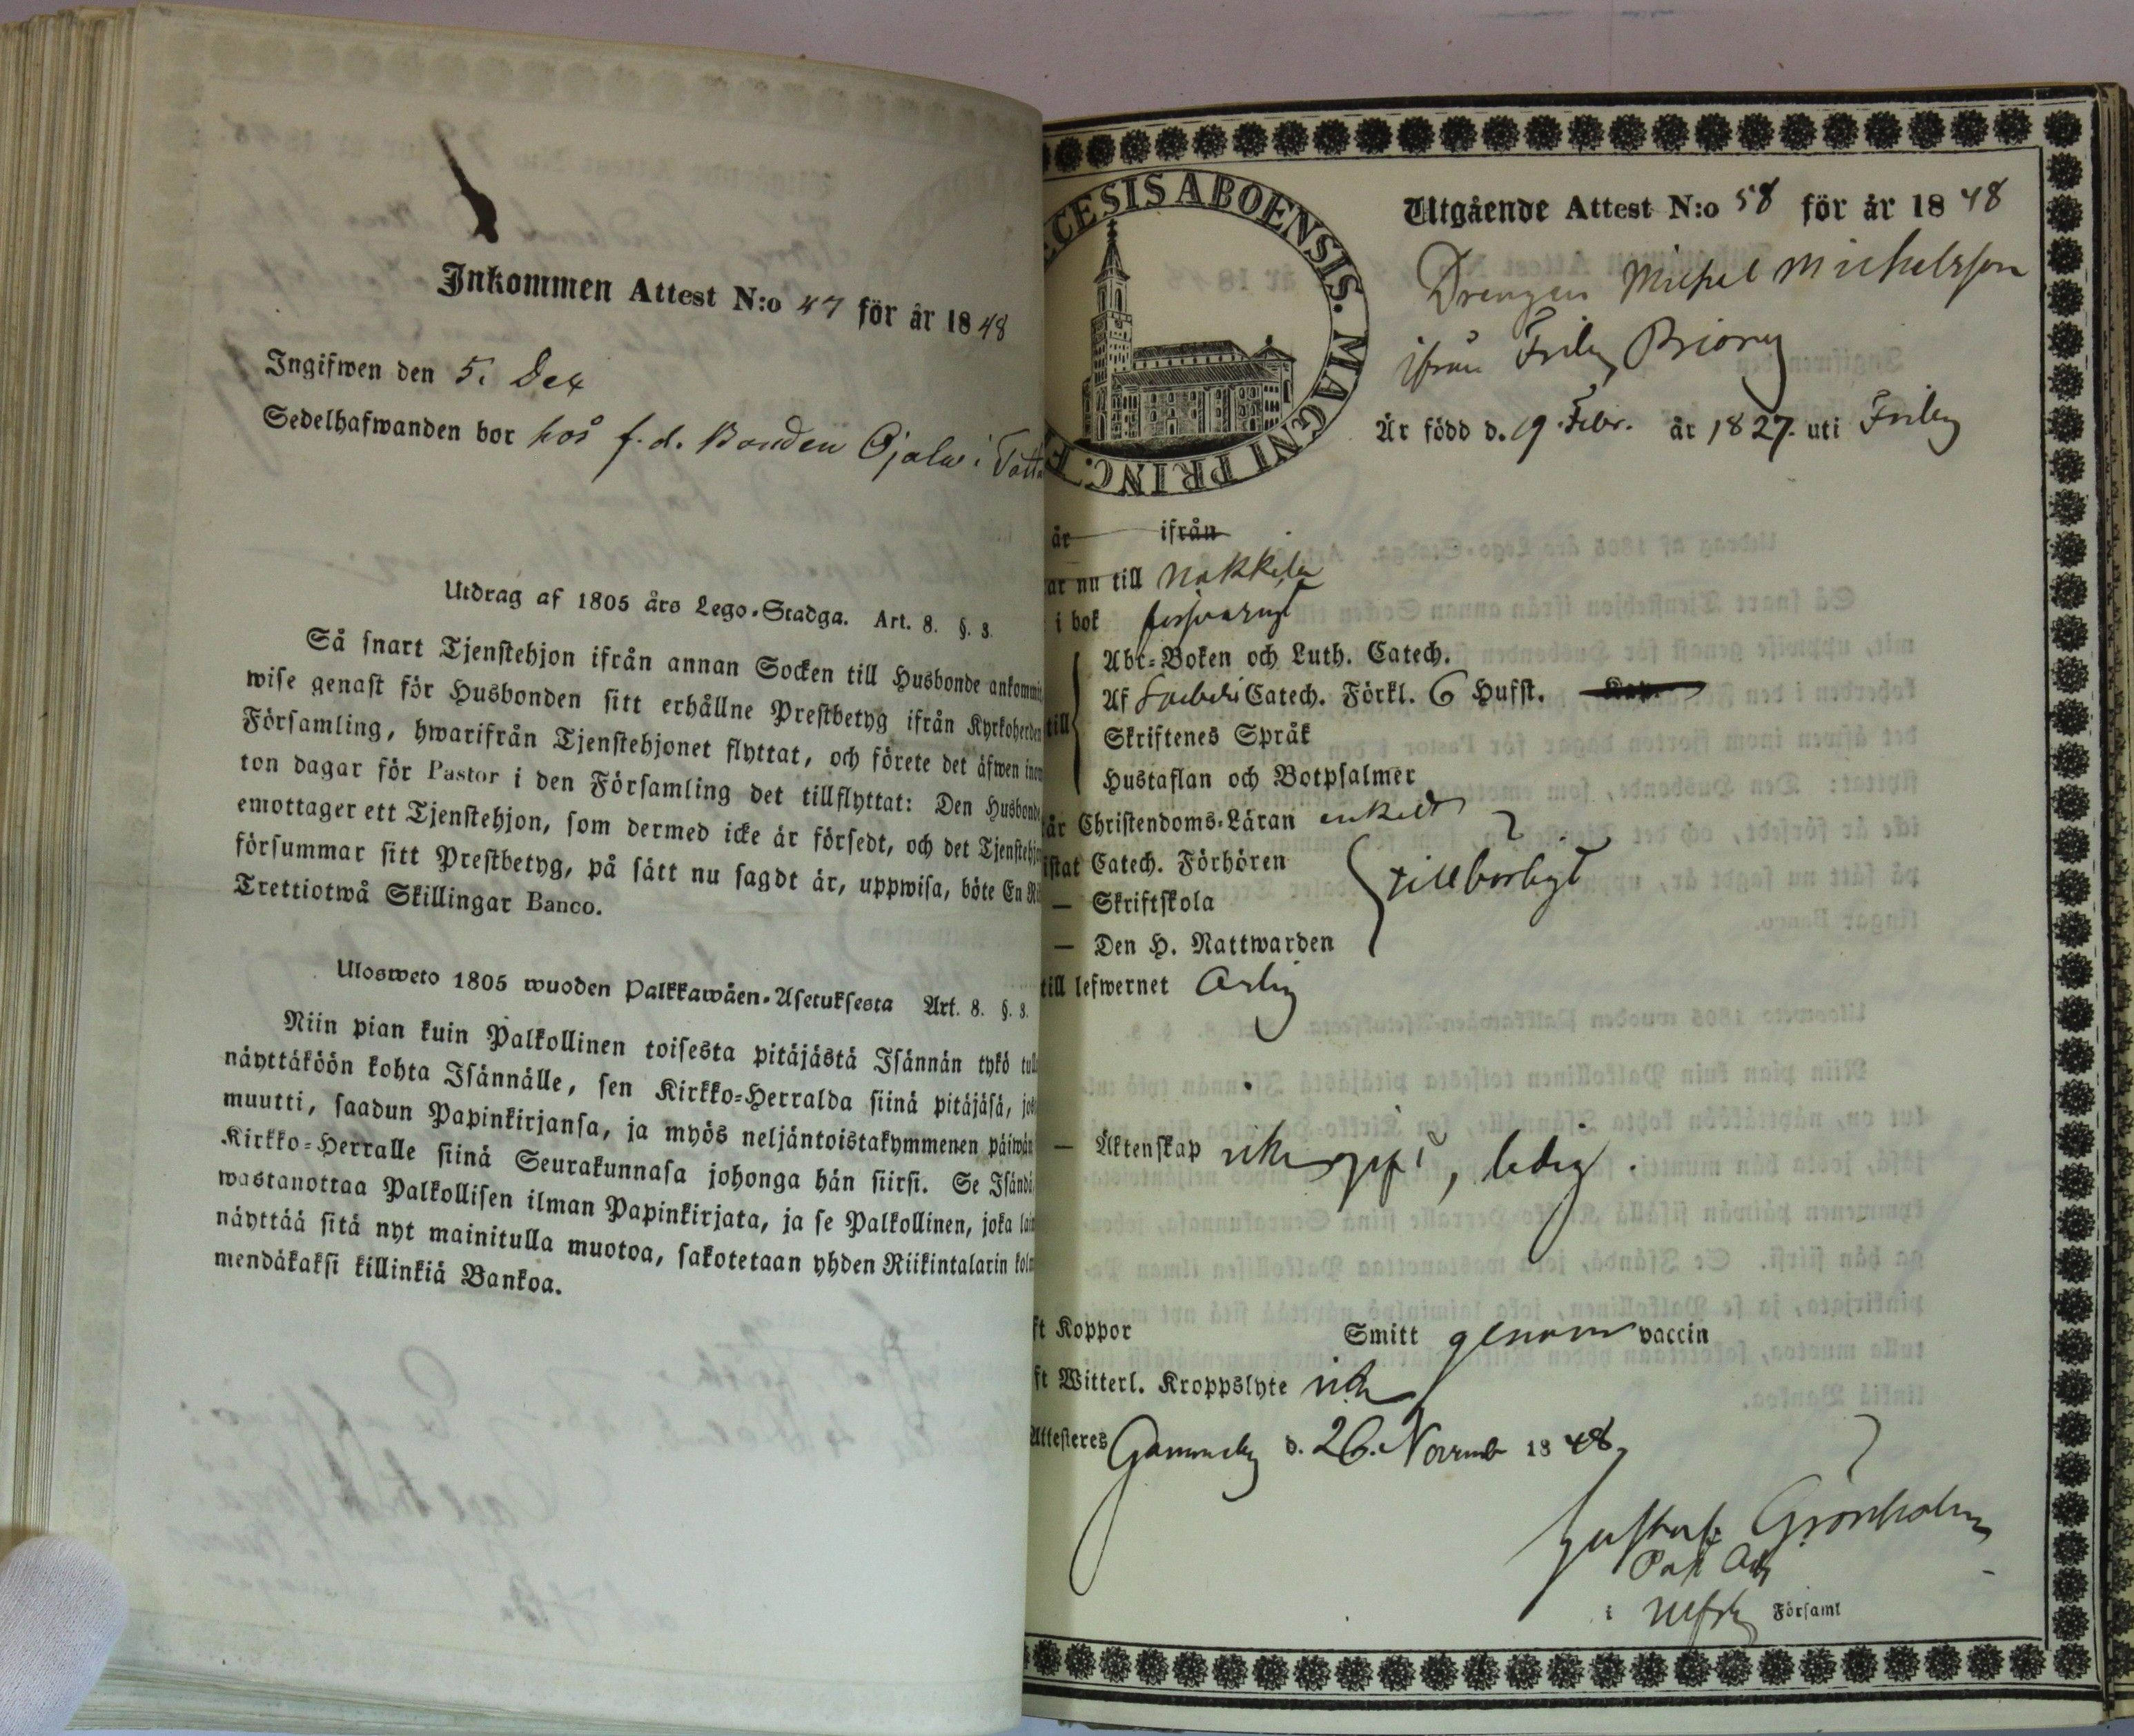 Inkommen Attest N:o 47 för år 1848
Ingifwen den 5. Dec
Sedelhafwanden bor hos f.d. Bonden Ojala i
Utdrag af 1805 års Lego-Stadga. Art. 8. §. 3.
Så snart Tjenstehjon ifrån annan Socken till Husbonde ankommit,
wise genast för Husbonden sitt erhållne Prestbetyg ifrån Kyrkoherden
Församling, hwarifrån Tjenstehjonet flyttat, och förete det äfwen inom
ton dagar för Pastor i den Församling det tillflyttat: Den Husbonde,
emottager ett Tjenstehjon, som dermed icke är försedt, och det Tjenstehjon
försummar sitt Prestbetyg, på sätt nu sagdt är, uppwisa, böte En Ri
Trettiotwå Skillingar Banco.
Ulosweto 1805 wuoden Palkkawäen-Asetuksesta Art. 8. §. 3.
Niin pian kuin Palkollinen toisesta pitäjästä Isännän tykö tull
näyttäköön kohta Isännälle, sen Kirkko-Herralda siinä pitäjäsä, jos
muutti, saadun Papinkirjansa, ja myös neljäntoistakymmenen päiwän
Kirkko-Herralle siinä Seurakunnasa johonga hän siirsi. Se Isändä
wastanottaa Palkollisen ilman Papinkirjata, ja se Palkollinen, joka laim
näyttää sitä nyt mainitulla muotoa, sakotetaan yhden Riikintalarin kolm
mendäkaksi killinkiä Bankoa.
CESIS ABOENSIS. MAGNI PRINC. F
Utgående Attest N:o 58 för år 1848
Drengen Michel Michelsson
ifrån Friby Briory
Är född d. 19 Febr. år 1827. uti Friby
år ifrån
ar nu till Nakkila
i bok försvarligt
Abc-Boken och Luth. Catech.
till Af Svebelii Catech. Förkl. 6 Hufst.
Skriftenes Språk
Hustaflan och Botpsalmer
år Christendoms-Läran enkelt
istat Catech. Förhören
— Skriftskola tillbörligt
— Den H. Nattwarden
till lefwernet Ärlig
— Äktenskap icke gift, ledig.
ft Koppor Smitt genom vaccin
ft Witterl. Kroppslyte icke
Attesteres Gammelby d. 26. Novemb 1848,
Gustaf Grönholm
Past Adj
i Ulfsby Församl